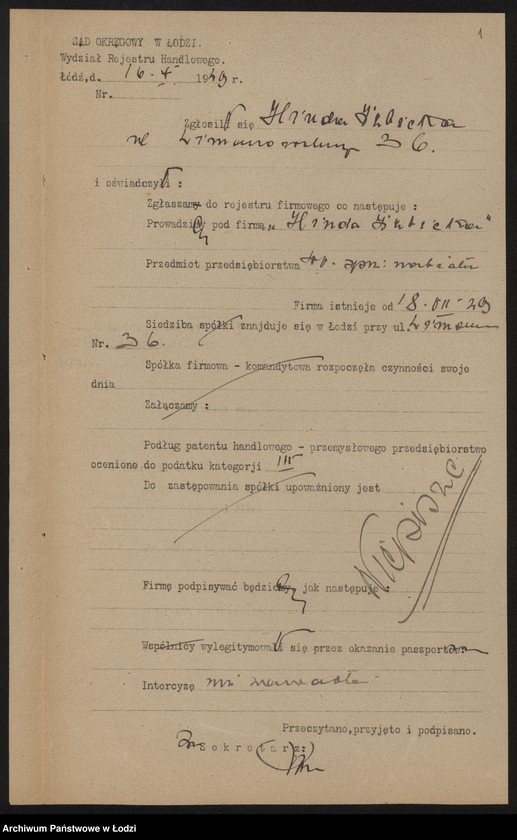 1
SĄD OKRĘGOWY W ŁODZI.
Wydział Rejestru Handlowego.
Łódź,d. 16. X 1929 r.
Nr.
Zgłosił się Hinda Izbicka
ul 36.
i oświadczył :
Zgłaszamy do rejestru firmowego co następuje :
Prowadzimy pod firmą „Hinda Izbicka"
Przedmiot przedsiębiorstwa
Firma istnieje od 18. VII-29
Siedziba spółki znajduje się w Łodzi przy ul.
Nr. 36.
Spółka firmowa - komandytowa rozpoczęła czynności swoje
dnia
Załączamy :
Podług patentu handlowego - przemysłowego przedsiębiorstwo
ocenione do podatku kategorji III
Do zastępowania spółki upoważniony jest
Niepisze
Firmę podpisywać będziemy jak następuje :
Wspólnicy wylegitymowali się przez okazanie paszportów.
Intercyzę nie zawarła
Przeczytano,przyjęto i podpisano.
Sekretarz:
Archiwum Państwowe w Łodzi